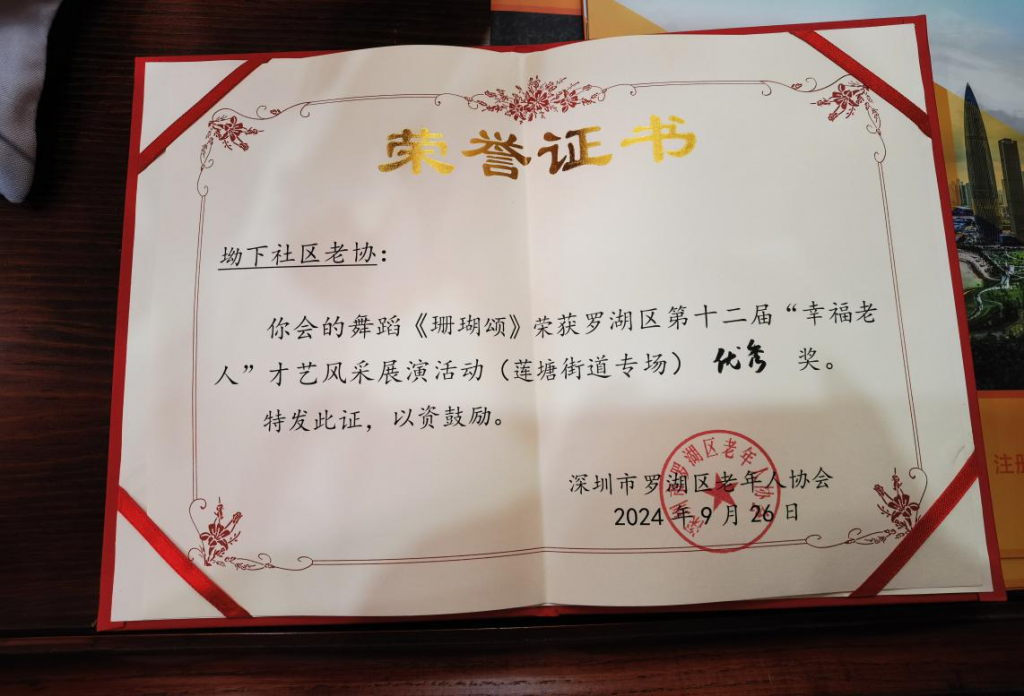 荣誉证书
坳下社区老协：
你会的舞蹈《珊瑚颂》荣获罗湖区第十二届“幸福老
人”才艺风采展演活动（莲塘街道专场） 优秀 奖。
特发此证，以资鼓励。
深圳市罗湖区老年人协会
2024年9月26日
深圳市罗湖区老年人协会
注册